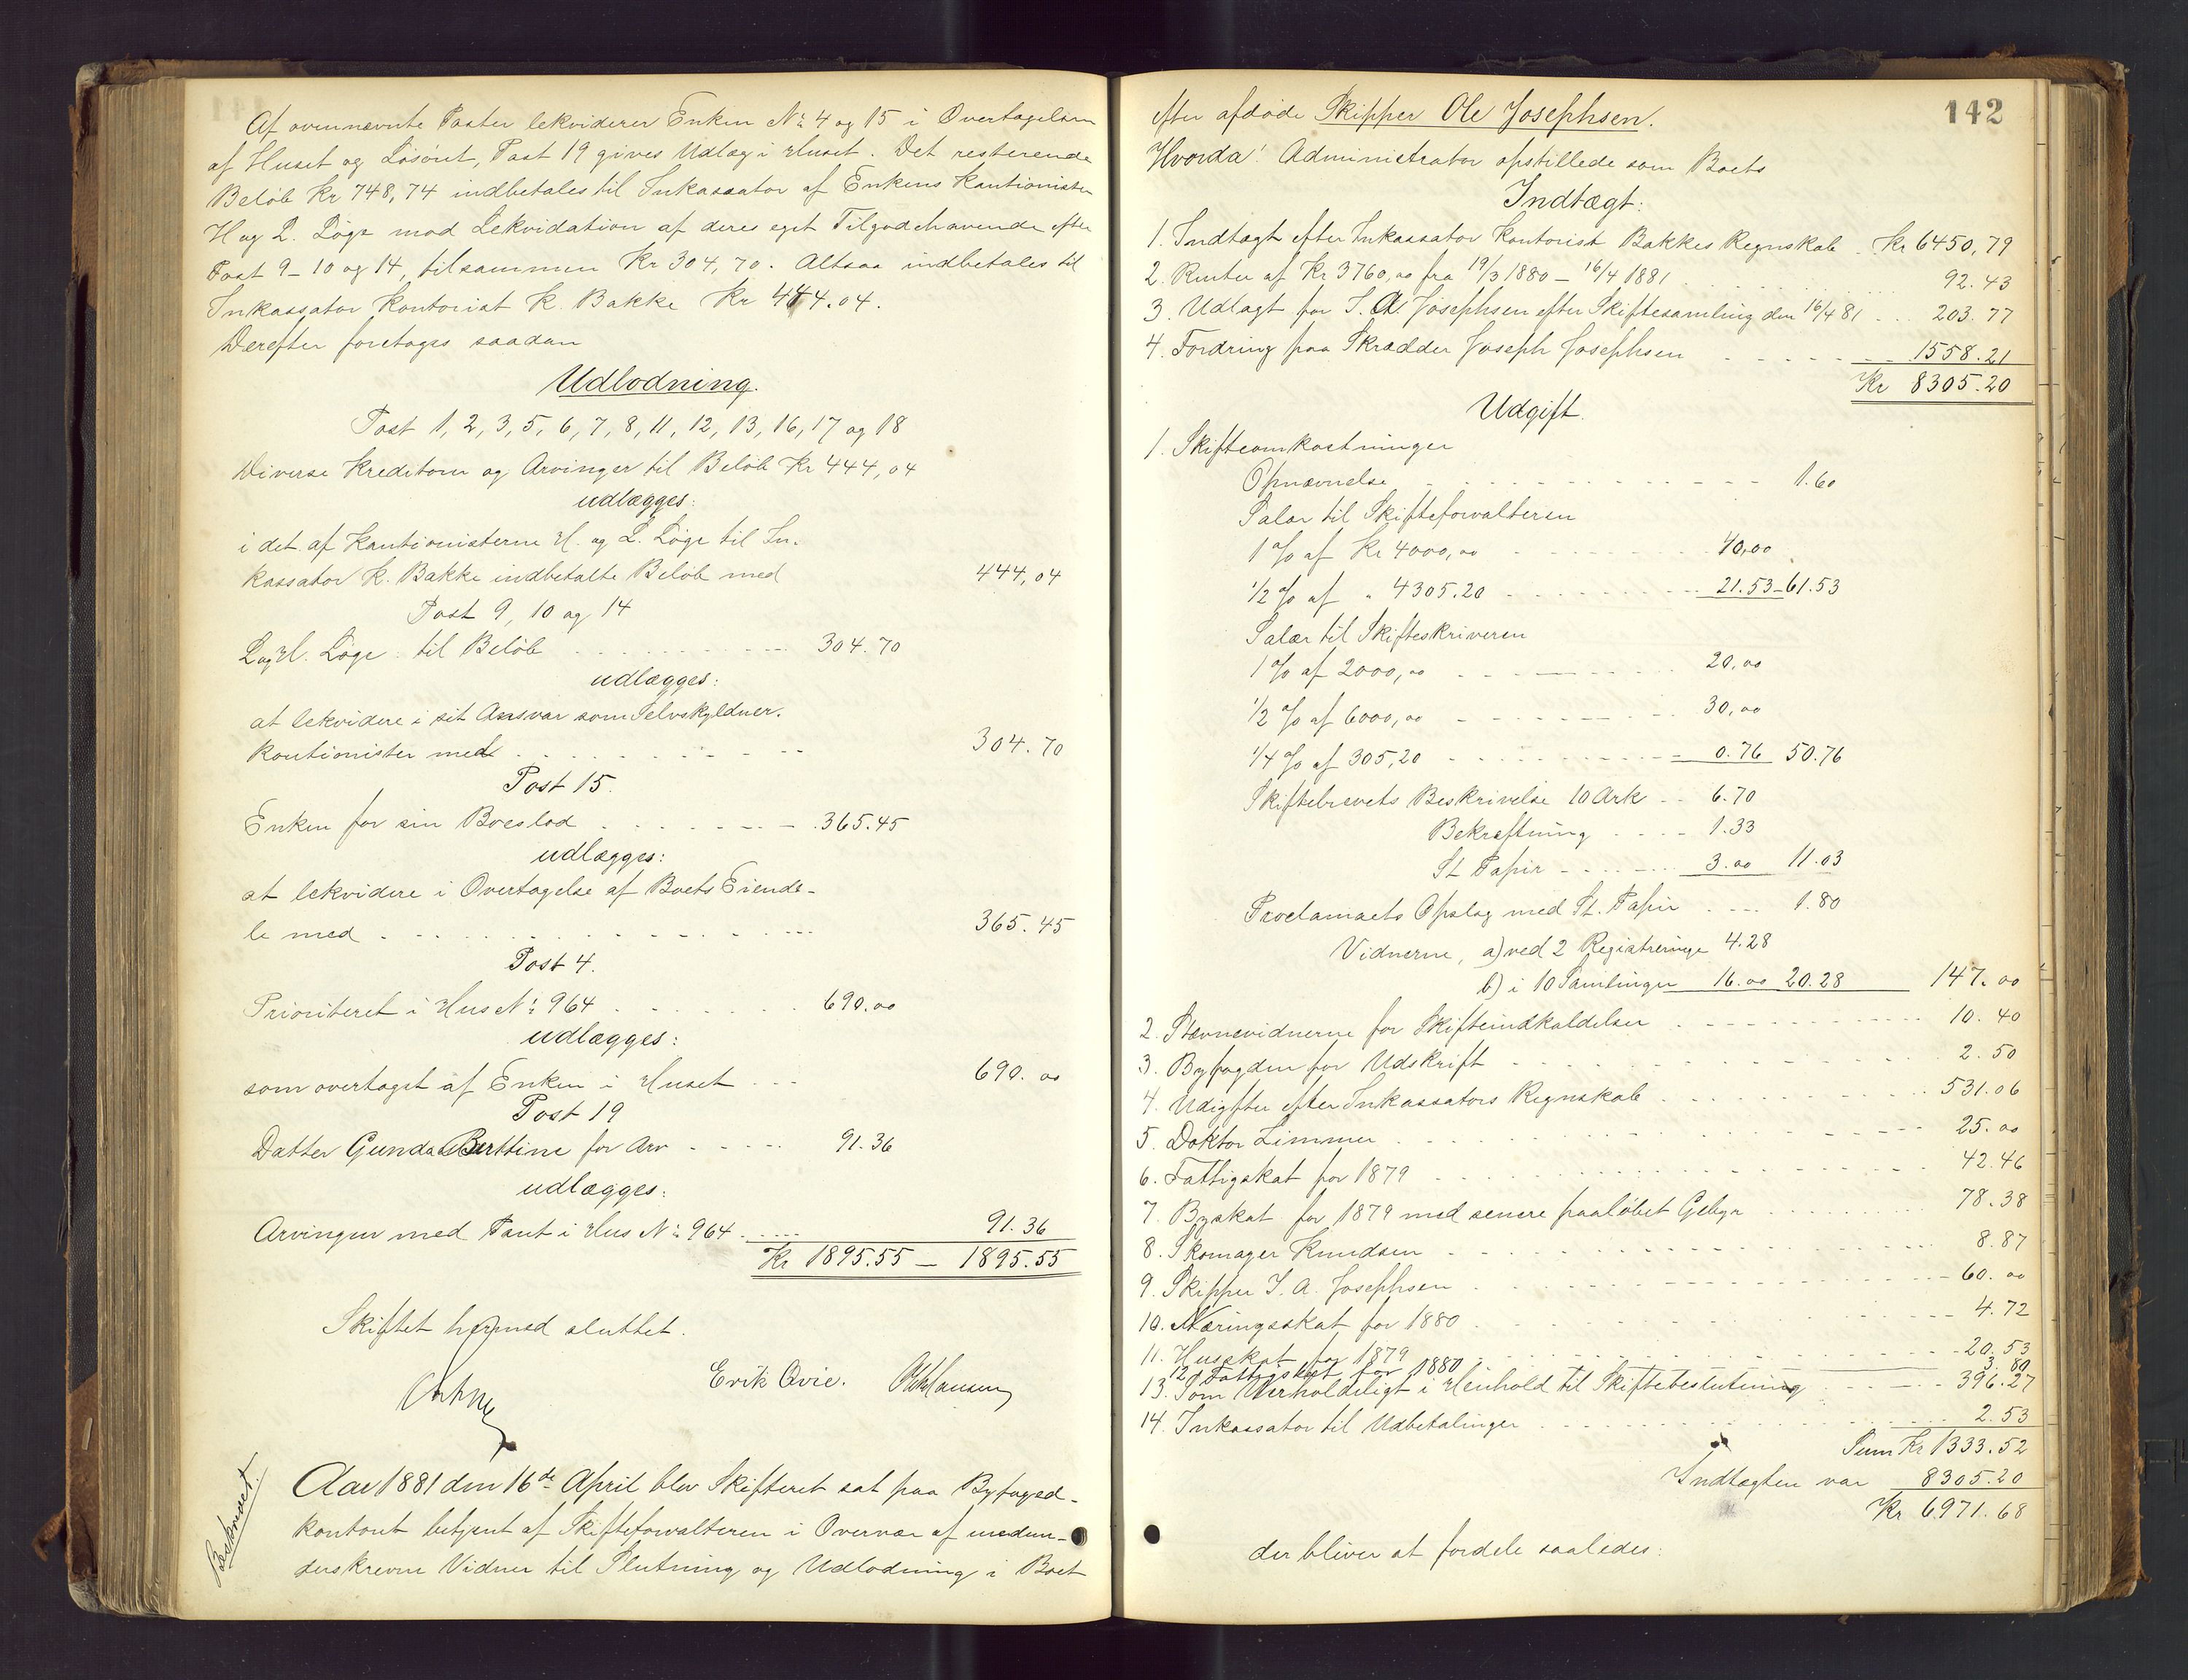 Af ovennævnte Poster lekviderer Enken No 4 og 15 i Overtagelsen
af Huset og Løsøret, Post 19 gives Udlæg i Huset. Det resterende
Beløb Kr 748,74 indbetales til Inkassator af Enkens Kautionister
H og L. Løge mod Lekvidation af deres eget Tilgodehavende efter
Post 9-10 og 14, tilsammen Kr 304,70. Altsaa indbetales til
Inkassator Kontorist K. Bakke Kr 444.04.
Derefter foretoges saadan
Udlodning.
Post 1, 2, 3, 5, 6, 7, 8, 11, 12, 13, 16, 17 og 18
Diverse Kreditorer og Arvinger til Beløb Kr 444,04
udlægges:
i det af Kautionisterne H. og L. Løge til In-
kassator K. Bakke indbetalte Beløb med 444,04
Post 9, 10 og 14
L og H. Løge til Beløb 304.70
udlægges:
at lekvidere i sit Ansvar som Selvskyldner-
kautionister med 304.70
Post 15.
Enken for sin Boeslod 365.45
udlægges:
at lekvidere i Overtagelse af Boets Eiende-
le med 365.45
Post 4.
Prioriteret i Hus No 964 690.00
udlægges:
som overtaget af Enken i Huset 690.00
Post 19
Datter Gunda Berttine for Arv 91.36
udlægges:
Arvingen med Pant i Hus No 964 91.36
Kr 1895.55 — 1895.55
Skiftet hermed sluttet.
Erik Qvie.
Beskrevet.
Aar 1881 den 16de April blev Skifteret sat paa Byfoged-
kontoret betjent af Skifteforvalteren i Overvær af nedenun-
derskrevne Vidner til Slutning og Udlodning i Boet
142
efter afdøde Skipper Ole Josephsen.
Hvorda! Administrator opstillede som Boets
Indtægt:
1. Indtægt efter Inkassator Kontorist Bakkes Regnskab Kr 6450,79
2. Renter af Kr 3760,00 fra 19/3 1880 – 16/4 1881 92.43
3. Udlagt for I. A. Josephsen efter Skiftesamling den 16/4 81 203.77
4. Fordring paa Skrædder Joseph Josephsen 1558.21
Kr 8305.20
Udgift.
1. Skifteomkostninger
Opnævnelse 1.60
Salær til Skifteforvalteren
1 % af Kr 4000,00 40,00
1/2 % af " 4305.20 21.53 – 61.53
Salær til Skifteskriveren
1 % af 2000,00 20,00
1/2 % af 6000,00 30,00
1/4 % af 305,20 0.76 50.76
Skiftebrevets Beskrivelse 10 Ark 6.70
Bekræftning 1.33
St Papir 3.00 11.03
Proclamaets Opslag med St. Papir 1.80
Vidnerne, a) ved 2 Registreringe 4.28
b) i 10 Samlinger 16.00 20.28 147.00
2. Stævnevidnerne for Skifteindkaldelser 10.40
3. Byfogden for Udskrift 2.50
4. Udigfter efter Inkassators Regnskab 531.06
5. Doktor Limmer 25.00
6. Fattigskat for 1879 42.46
7. Byskat for 1879 med senere paaløbet Gebyr 78.38
8. Skomager Knudsen 8.87
9. Skipper I. A. Josephsen 60.00
10. Næringsskat for 1880 4.72
11. Husskat for 1879 20.53
12. Fattigskat for 1880 3.80
13. Som Uerholdeligt i Henhold til Skiftebeslutning 396.27
14. Inkassator til Udbetalinger 2.53
Sum Kr 1333.52
Indtægten var 8305.20
Kr 6971.68
der bliver at fordele saaledes: